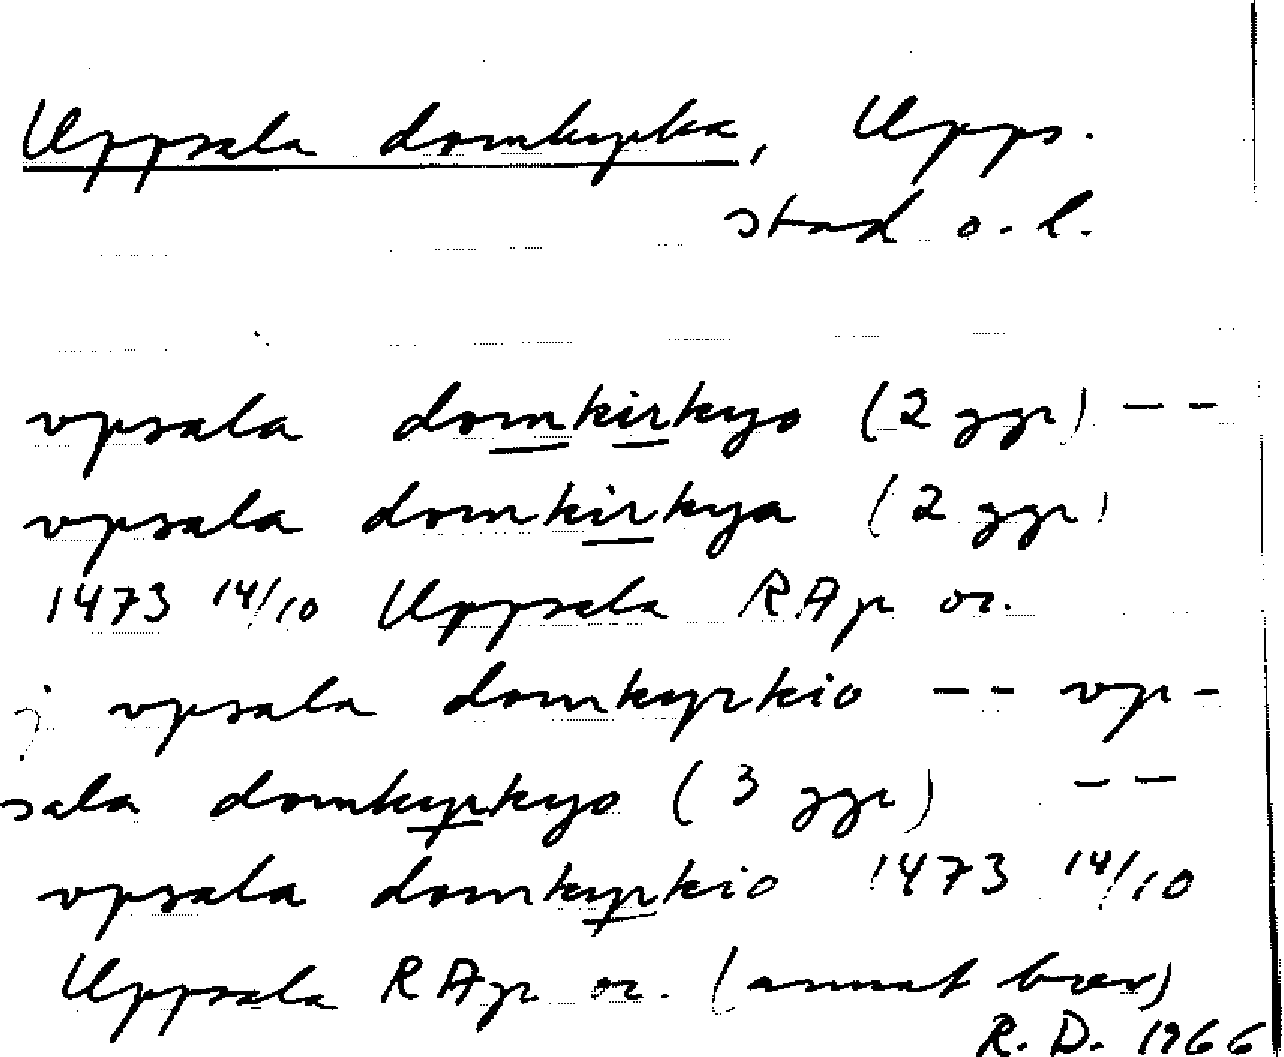 Uppsala domkyrka, Upps.
stad o. l.
vpsala domkirkyo (2 ggr) --
vpsala domkirkya (2 ggr)
1473 14/10 Uppsala RAp or.
j vpsala domkyrkio -- vp-
sala domkyrkyo (3 ggr) --
vpsala domkyrkio 1473 14/10
Uppsala RAp or. (annat brev)
R. D. 1966